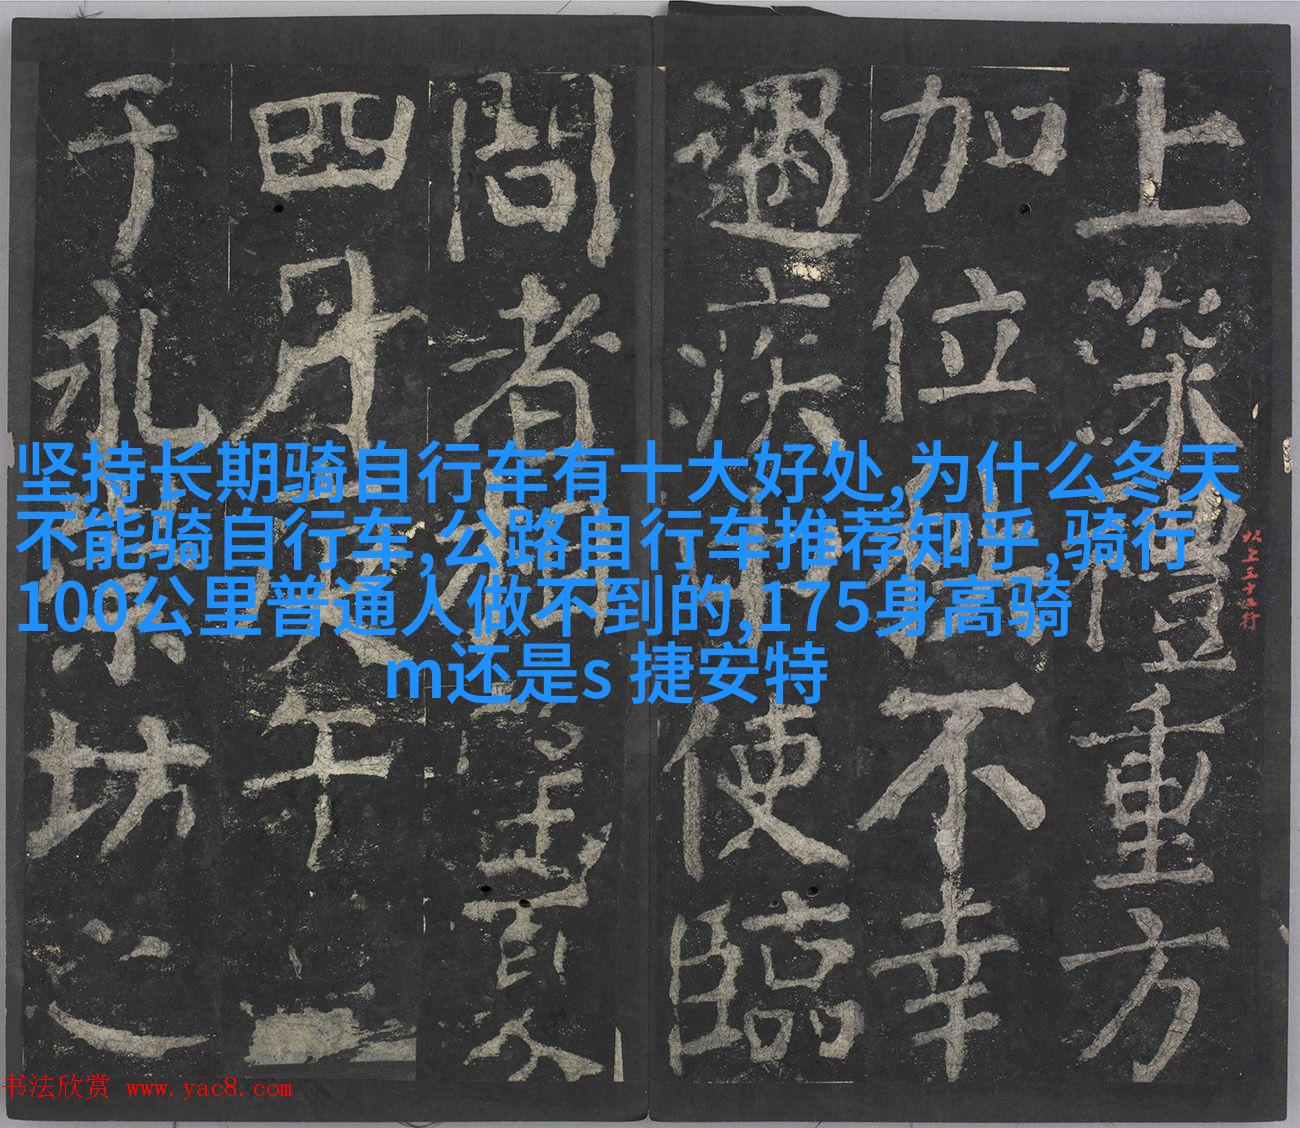 上深禮重方
加位不幸
遇疾使臨
問者
四月午
于永樂坊之
坚持长期骑自行车有十大好处,为什么冬天
不能骑自行车,公路自行车推荐知乎,骑行
100公里普通人做不到的,175身高骑
m还是s 捷安特
书法欣赏 www.yac8.com